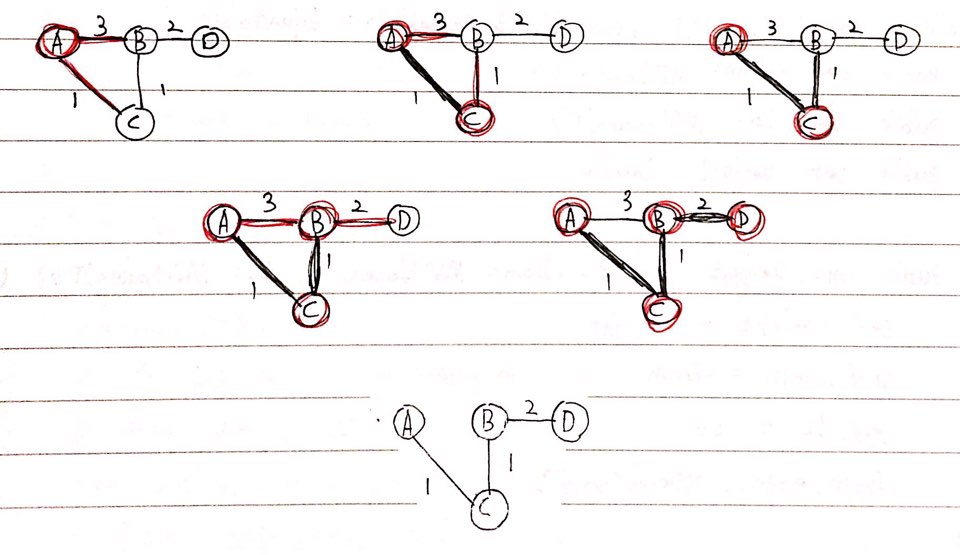 A 3 B 2 D
1 1
C
A 3 B 2 D
1 1
C
A 3 B 2 D
1 1
C
A 3 B 2 D
1 1
C
A 3 B 2 D
1 1
C
A B 2 D
1 1
C